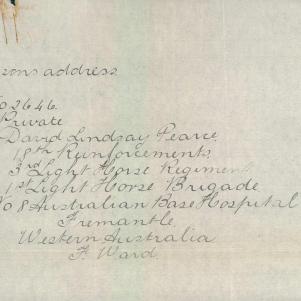 sons address
o 2646.
Private
David Lindsay Pearce.
18th Reinforcements,
3rd Light Horse Regiment
1st Light Horse Brigade
No 8 Australian Base Hospital
Fremantle.
Western Australia
F. Ward.